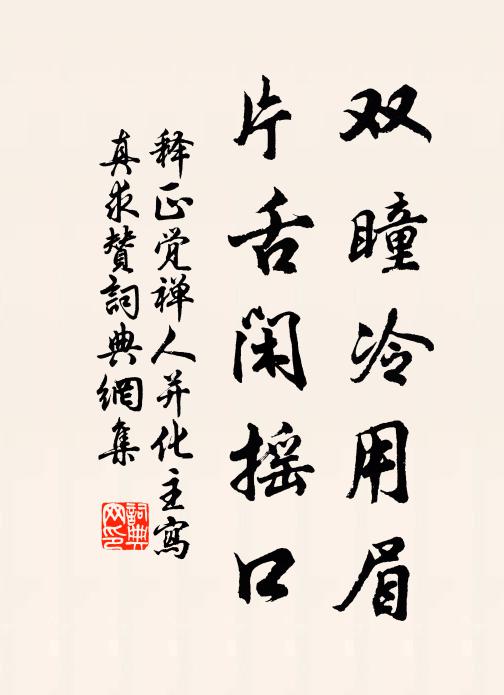 双瞳冷用眉
片舌闲摇口
释正觉禅人并化主寫
真求赞詞典網集
詞典
网印